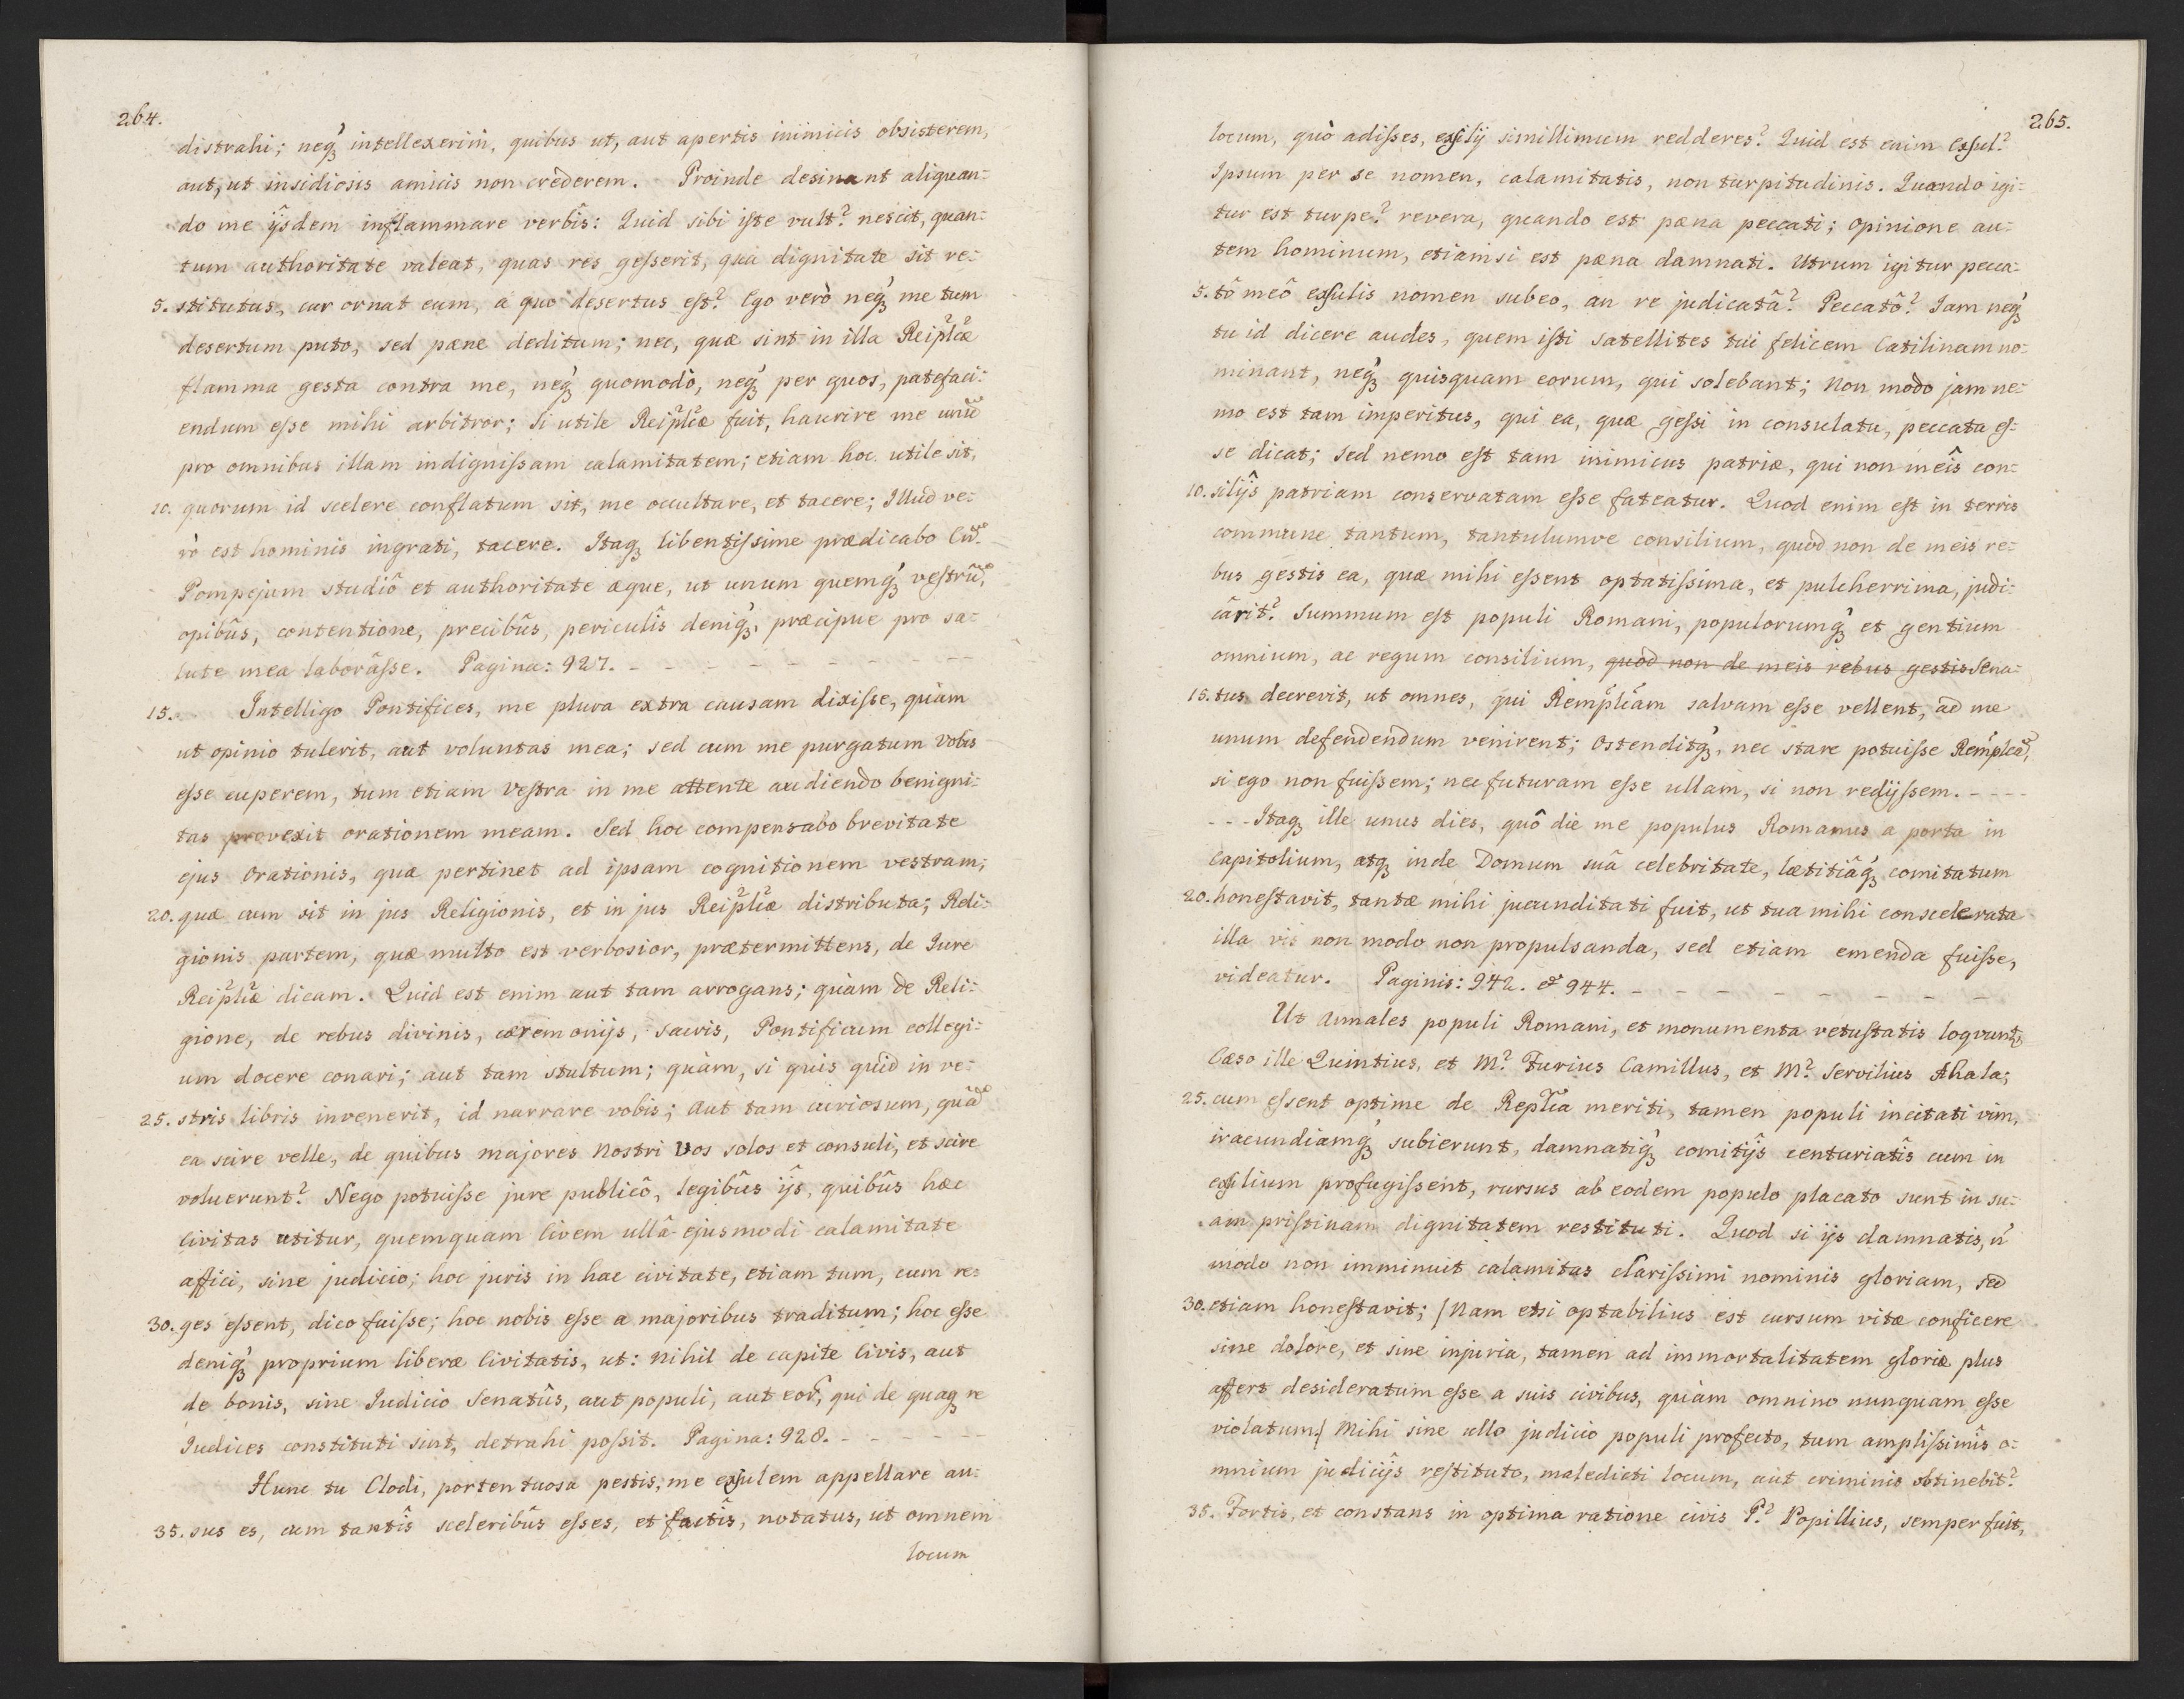 264.
distrahi; neq₃ intellexerim, quibus ut, aut apertis inimicis obsisterem,
aut, ut insidiosis amicis non crederem. Proinde desinant aliquan-
do me ijsdem inflammare verbîs: Quid sibi iste vult? nescit, quan-
tum authoritate valeat, quas res gesserit, qua dignitate sit re-
5. stitutus, cur ornat eum, a quo desertus est? Ego verò neq₃ me tum
desertum puto, sed pæne deditum; nec, quæ sint in illa Reiplcæ
flamma gesta contra me, neq₃ quomodo, neq₃ per quos, patefaci-
endum esse mihi arbitror; Si utile Reiplicæ fuit, haurire me unũ
pro omnibus illam indignissam calamitatem; etiam hoc utile sit,
10. quorum id scelere conflatum sit, me occultare, et tacere; Illud ve-
rò est hominis ingrati, tacere. Itaq₃ libentissime prædicabo Cn.
Pompejum studiô et authoritate æque, ut unum quemq₃ vestrũ,
opibûs, contentione, precibûs, periculîs deniq₃, præcipue pro sa-
lute mea laborâsse. Pagina: 927. - - - - - - - - -
15. Intelligo Pontifices, me plura extra causam dixisse, quàm
ut opinio tulerit, aut voluntas mea; sed cum me purgatum vobis
esse cuperem, tum etiam vestra in me attente audiendo benigni-
tas provexit orationem meam. Sed hoc compensabo brevitate
ejus Orationis, quæ pertinet ad ipsam cognitionem vestram;
20. quæ cum sit in jus Religionis, et in jus Reiplicæ distributa; Reli-
gionis partem, quæ multo est verbosior, prætermittens, de Jure
Reiplicæ dicam. Quid est enim aut tam arrogans; quàm de Reli-
gione, de rebus divinis, cæremonijs, sacris, Pontificum collegi-
um docere conari; aut tam stultum; quàm, si quis quid in ve-
25. stris libris invenerit, id narrare vobis; Aut tam curiosum, quã
ea scire velle, de quibus majores Nostri vos solos et consuli, et scire
voluerunt? Nego potuisse jure publicô, legibûs ijs, quibûs hæc
Civitas utitur, quemquam Civem ullâ ejusmodi calamitate
affici, sine judicio; hoc juris in hac civitate, etiam tum, cum re-
30. ges essent, dico fuisse; hoc nobis esse a majoribus traditum; hoc esse
deniq₃ proprium liberæ Civitatis, ut: Nihil de capite Civis, aut
de bonis, sine Iudicio Senatûs, aut populi, aut eorũ, qui de quaq₃ re
Iudices constituti sint, detrahi possit. Pagina: 928. - - - - - -
Hunc tu Clodi, portentuosa pestis, me exsulem appellare au-
35. sus es, cum tantîs sceleribûs esses, et factîs, notatus, ut omnem
locum
265.
locum, quò adisses, exsilij simillimum redderes? Quid est enim Exsul?
Ipsum per se nomen, calamitatis, non turpitudinis. Quando igi-
tur est turpe? revera, quando est pæna peccati; Opinione au-
tem hominum, etiamsi est pæna damnati. Utrum igitur pecca-
5. tô meô exsulis nomen subeo, an re judicatâ? Peccatô? Iam neq₃
tu id dicere audes, quem isti Satellites tui felicem Catilinam no-
minant, neq₃ quisquam eorum, qui solebant; Non modo jam ne-
mo est tam imperitus, qui ea, quæ gessi in consulatu, peccata es-
se dicat; Sed nemo est tam inimicus patriæ, qui non meîs con-
10. silijs patriam conservatam esse fateatur. Quod enim est in terris
commune tantum, tantulumve consilium, quod non de meis re-
bus gestis ea, quæ mihi essent optatissima, et pulcherrima, judi-
cârit? Summum est populi Romani, populorumq₃ et gentium
omnium, ac regum consilium, quod non de meis rebus gestis Sena-
15. tus decrevit, ut omnes, qui Remplicam salvam esse vellent, ad me
unum defendendum venirent; Ostenditq₃, nec stare potuisse Remplcã,
si ego non fuissem; nec futuram esse ullam, si non redijssem. - - - -
- - - Itaq₃ ille unus dies, quô die me populus Romanus a porta in
Capitolium, atq₃ inde Domum suâ celebritate, lætitiâq₃ comitatum
20. honestavit, tantæ mihi jucunditati fuit, ut tua mihi conscelerata
illa vis non modo non propulsanda, sed etiam emenda fuisse,
videatur. Paginis: 942. et 944. - - - - - - - -
Ut Annales populi Romani, et monumenta vetustatis loqvunt₂,
Cæso ille Quintius, et M? Furius Camillus, et M? Servilius Ahala;
25. cum essent optime de Replica meriti, tamen populi incitati vim,
iracundiamq₃ subierunt, damnatiq₃ comitijs centuriatîs cum in
exsilium profugissent, rursus ab eodem populo placato sunt in su-
am pristinam dignitatem restituti. Quod si ijs damnatis, ñ
modo non imminuit calamitas clarissimi nominis gloriam, sed
30. etiam honestavit; (Nam etsi optabilius est cursum vitæ conficere
sine dolore, et sine injuria, tamen ad immortalitatem gloriæ plus
affert desideratum esse a suis civibus, quàm omnino nunquam esse
violatum) Mihi sine ullo judicio populi profecto, tum amplissimîs o-
mnium judicijs restituto, maledicti locum, aut criminis obtinebit?
35. Fortis, et constans in optima ratione civis P? Popillius, semper fuit,